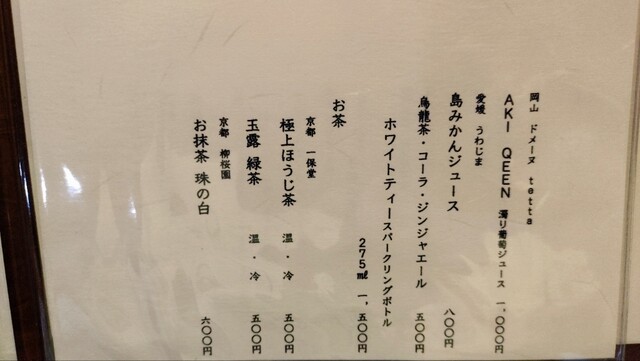 岡山 ドメーヌ tetta
AKI QEEN 濁り葡萄ジュース 一、〇〇〇円
愛媛 うわじま
島みかんジュース 八〇〇円
烏龍茶・コーラ・ジンジャエール 五〇〇円
ホワイトティースパークリングボトル
275㎖ 一、五〇〇円
お茶
京都 一保堂
極上ほうじ茶 温・冷 五〇〇円
玉露 緑茶 温・冷 五〇〇円
京都 柳桜園
お抹茶 珠の白 六〇〇円